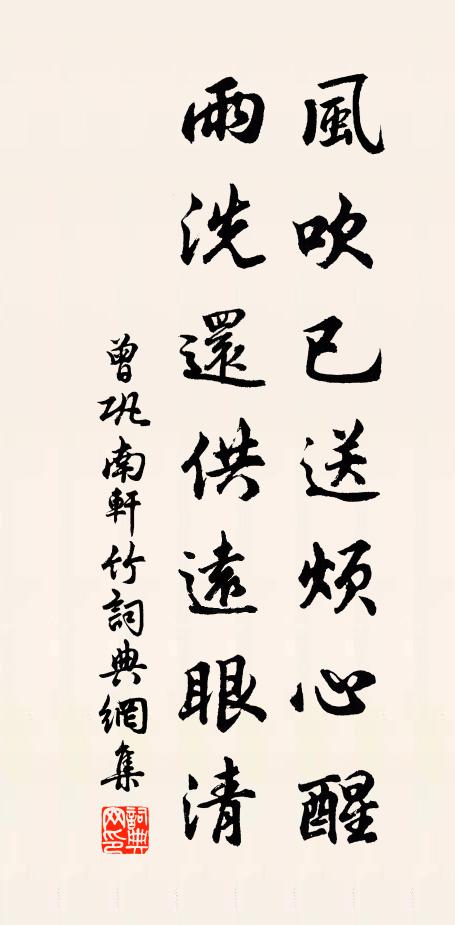 風吹已送煩心醒
雨洗還供遠眼清
曾巩南軒竹詞典網集
詞典網印